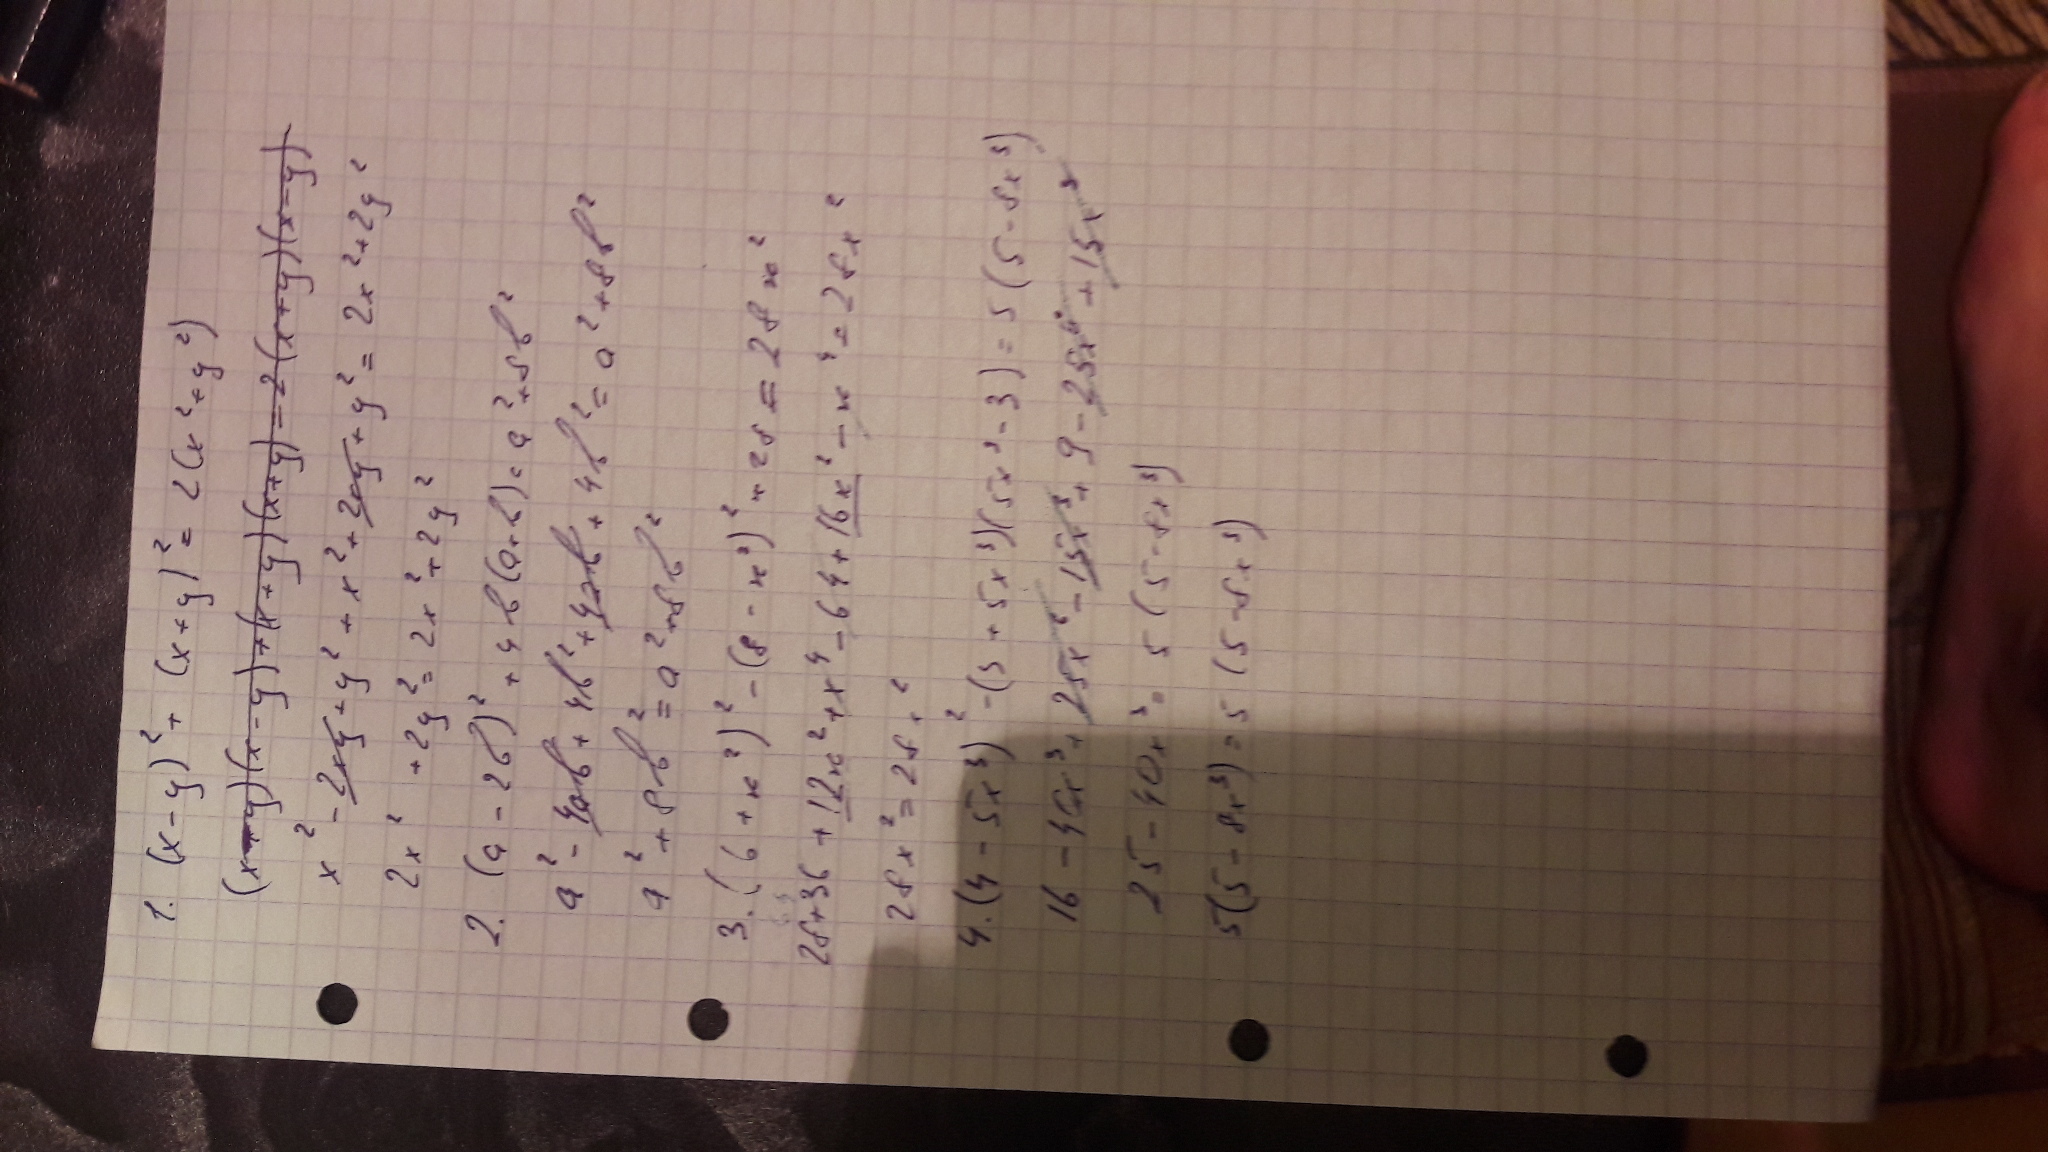 1. (x-y)² + (x+y)² = 2(x²+y²)
(x-y)(x-y)+(x+y)(x+y)=2(x+y)(x-y)
x² - 2xy + y² + x² + 2xy + y² = 2x² + 2y²
2x² + 2y² = 2x² + 2y²
2. (a-2b)² + 4b(a+b) = a² + 8b²
a² - 4ab + 4b² + 4ab + 4b² = a² + 8b²
a² + 8b² = a² + 8b²
3. (6+x²)² - (8-x²)² + 28 = 28x²
28+36 + 12x² + x⁴ - 64 + 16x² - x⁴ = 28x²
28x² = 28x²
4. (4-5x³)² - (3+5x³)(5x³-3) = 5(5-8x³)
16 - 40x³ + 25x⁶ - 15x³ + 9 - 25x⁶ + 15x³
25 - 40x³ = 5(5-8x³)
5(5-8x³) = 5(5-8x³)